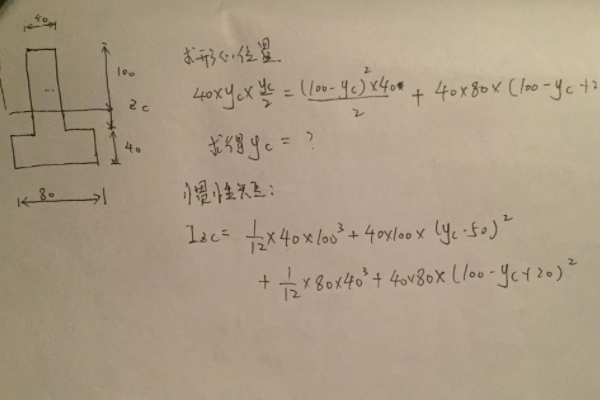 40
100
zc
40
80
求形心位置
40×yc×yc/2 = (100-yc)²×40/2 + 40×80×(100-yc+2
求得yc = ?
惯性矩:
Izc = 1/12×40×100³+40×100×(yc-50)²
+ 1/12×80×40³+40×80×(100-yc+20)²